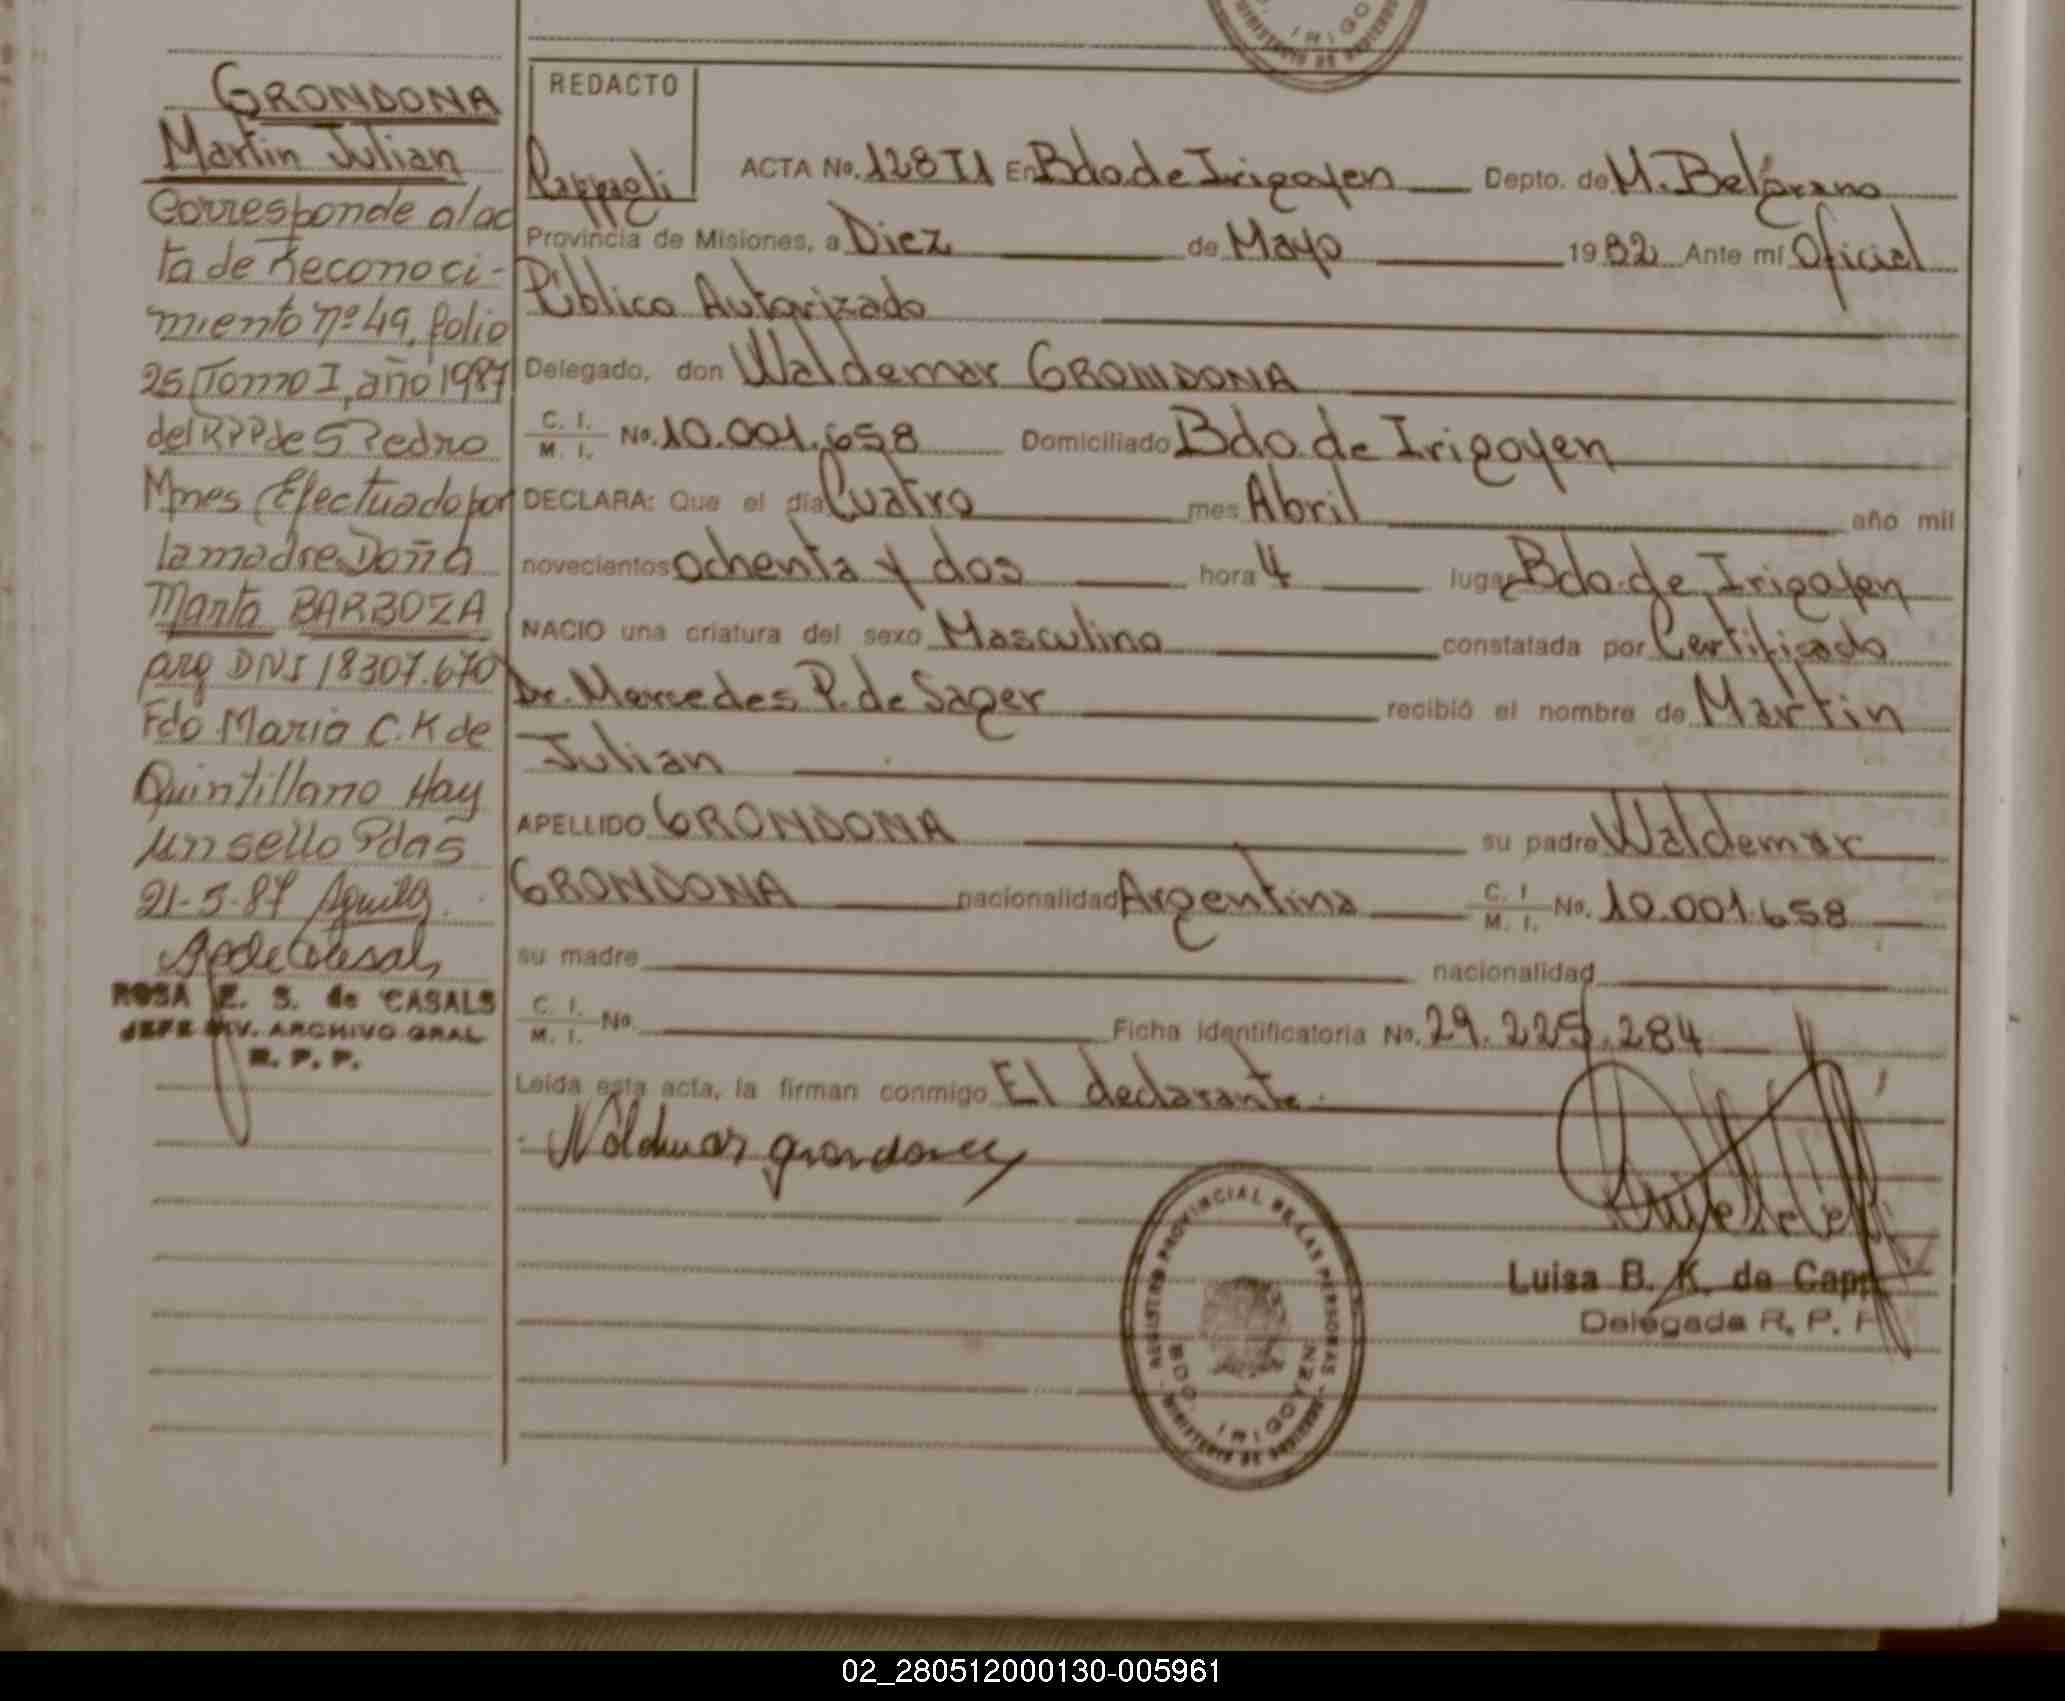 GRONDONA
Martin Julian
Corresponde al ac
ta de Reconoci-
miento nº 49, folio
25, Tomo I, año 1987
del RPP de S Pedro
Mnes Efectuado por
la madre Doña
Marta BARBOZA
arg DNI 18307.670
Fdo Maria C. K de
Quintillano Hay
un sello Pdas
21-5-87
ROSA E. S. de CASALS
JEFE DIV. ARCHIVO GRAL
R. P. P.
REDACTO
ACTA No. 128 T1 En Bdo. de Irigoyen Depto. de M. Belgrano
Provincia de Misiones, a Diez de Mayo 1982 Ante mí Oficial
Público Autorizado
Delegado, don Waldemar GRONDONA
C. I. M. I. No. 10.001.658 Domiciliado Bdo. de Irigoyen
DECLARA: Que el día Cuatro mes Abril año mil
novecientos ochenta y dos hora 4 lugar Bdo. de Irigoyen
NACIO una criatura del sexo Masculino constatada por Certificado
Dr. Mercedes P. de Sager recibió el nombre de Martin
Julian
APELLIDO GRONDONA su padre Waldemar
GRONDONA nacionalidad Argentina C. I. M. I. No. 10.001.658
su madre nacionalidad
C. I. M. I. No. Ficha identificatoria No. 29.225.284
Leída esta acta, la firman conmigo El declarante.
Waldemar Grondona
REGISTRO PROVINCIAL DE LAS PERSONAS
BDO. IRIGOYEN
Luisa B. K. de
Delegada R. P.
02_280512000130-005961